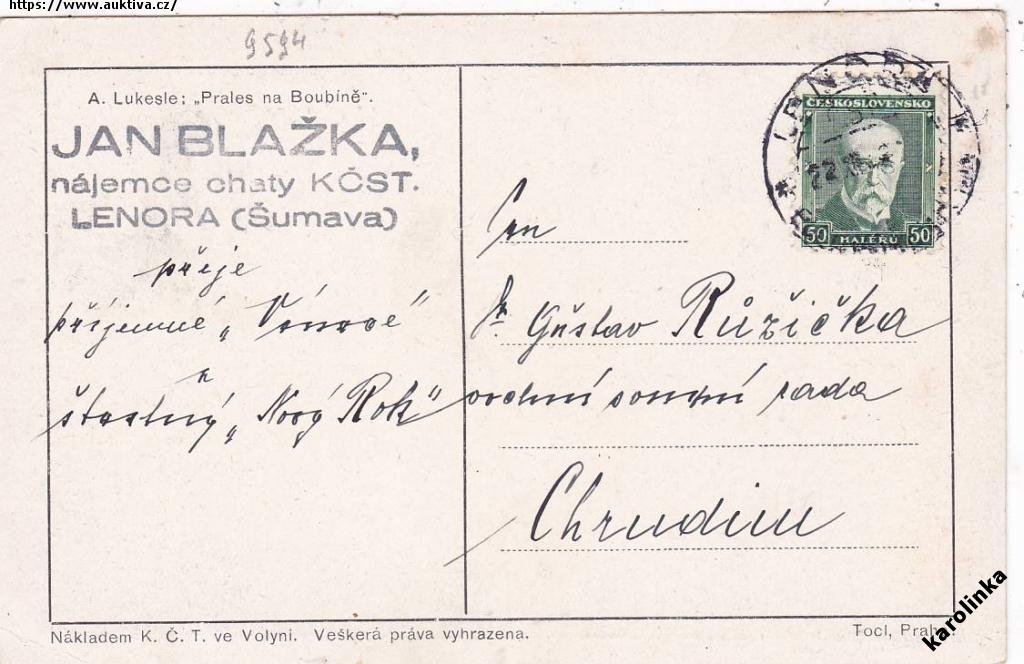 https://www.auktiva.cz/
9594
A. Lukesle: „Prales na Boubíně".
JAN BLAŽKA,
nájemce chaty KČST.
LENORA (Šumava)
přeje
příjemné „Vánoce"
a
šťastný „Nový Rok"
ČESKOSLOVENSKO
50 HALÉŘŮ 50
LENORA
22
Pan
Dr. Gustav Růžička
vrchní soudní rada
Chrudim
Nákladem K. Č. T. ve Volyni. Veškerá práva vyhrazena.
Tocl, Praha.
karolinka